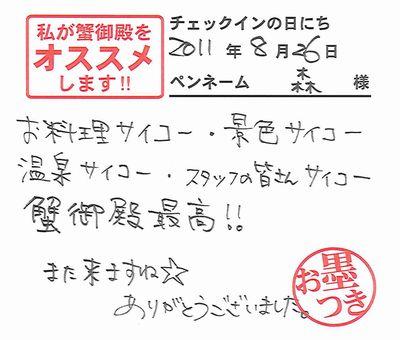 私が蟹御殿を
オススメ
します!!
チェックインの日にち
2011 年 8 月 26 日
ペンネーム 森 様
お料理サイコー・景色サイコー
温泉サイコー・スタッフの皆さんサイコー
蟹御殿最高!!
また来ますね☆
ありがとうございました。
お墨つき